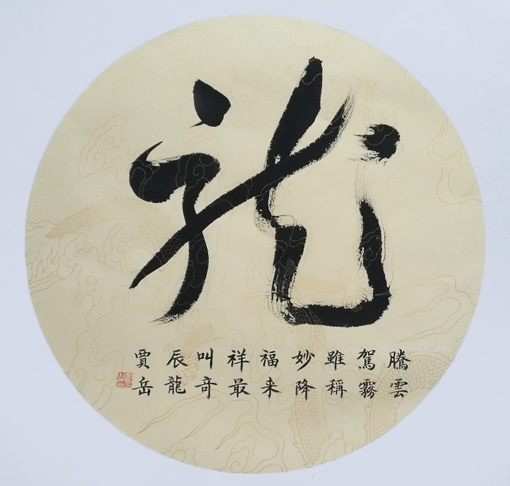 龍
騰雲
駕霧
雖稱
妙降
福来
祥最
叫奇
辰龍
賈岳